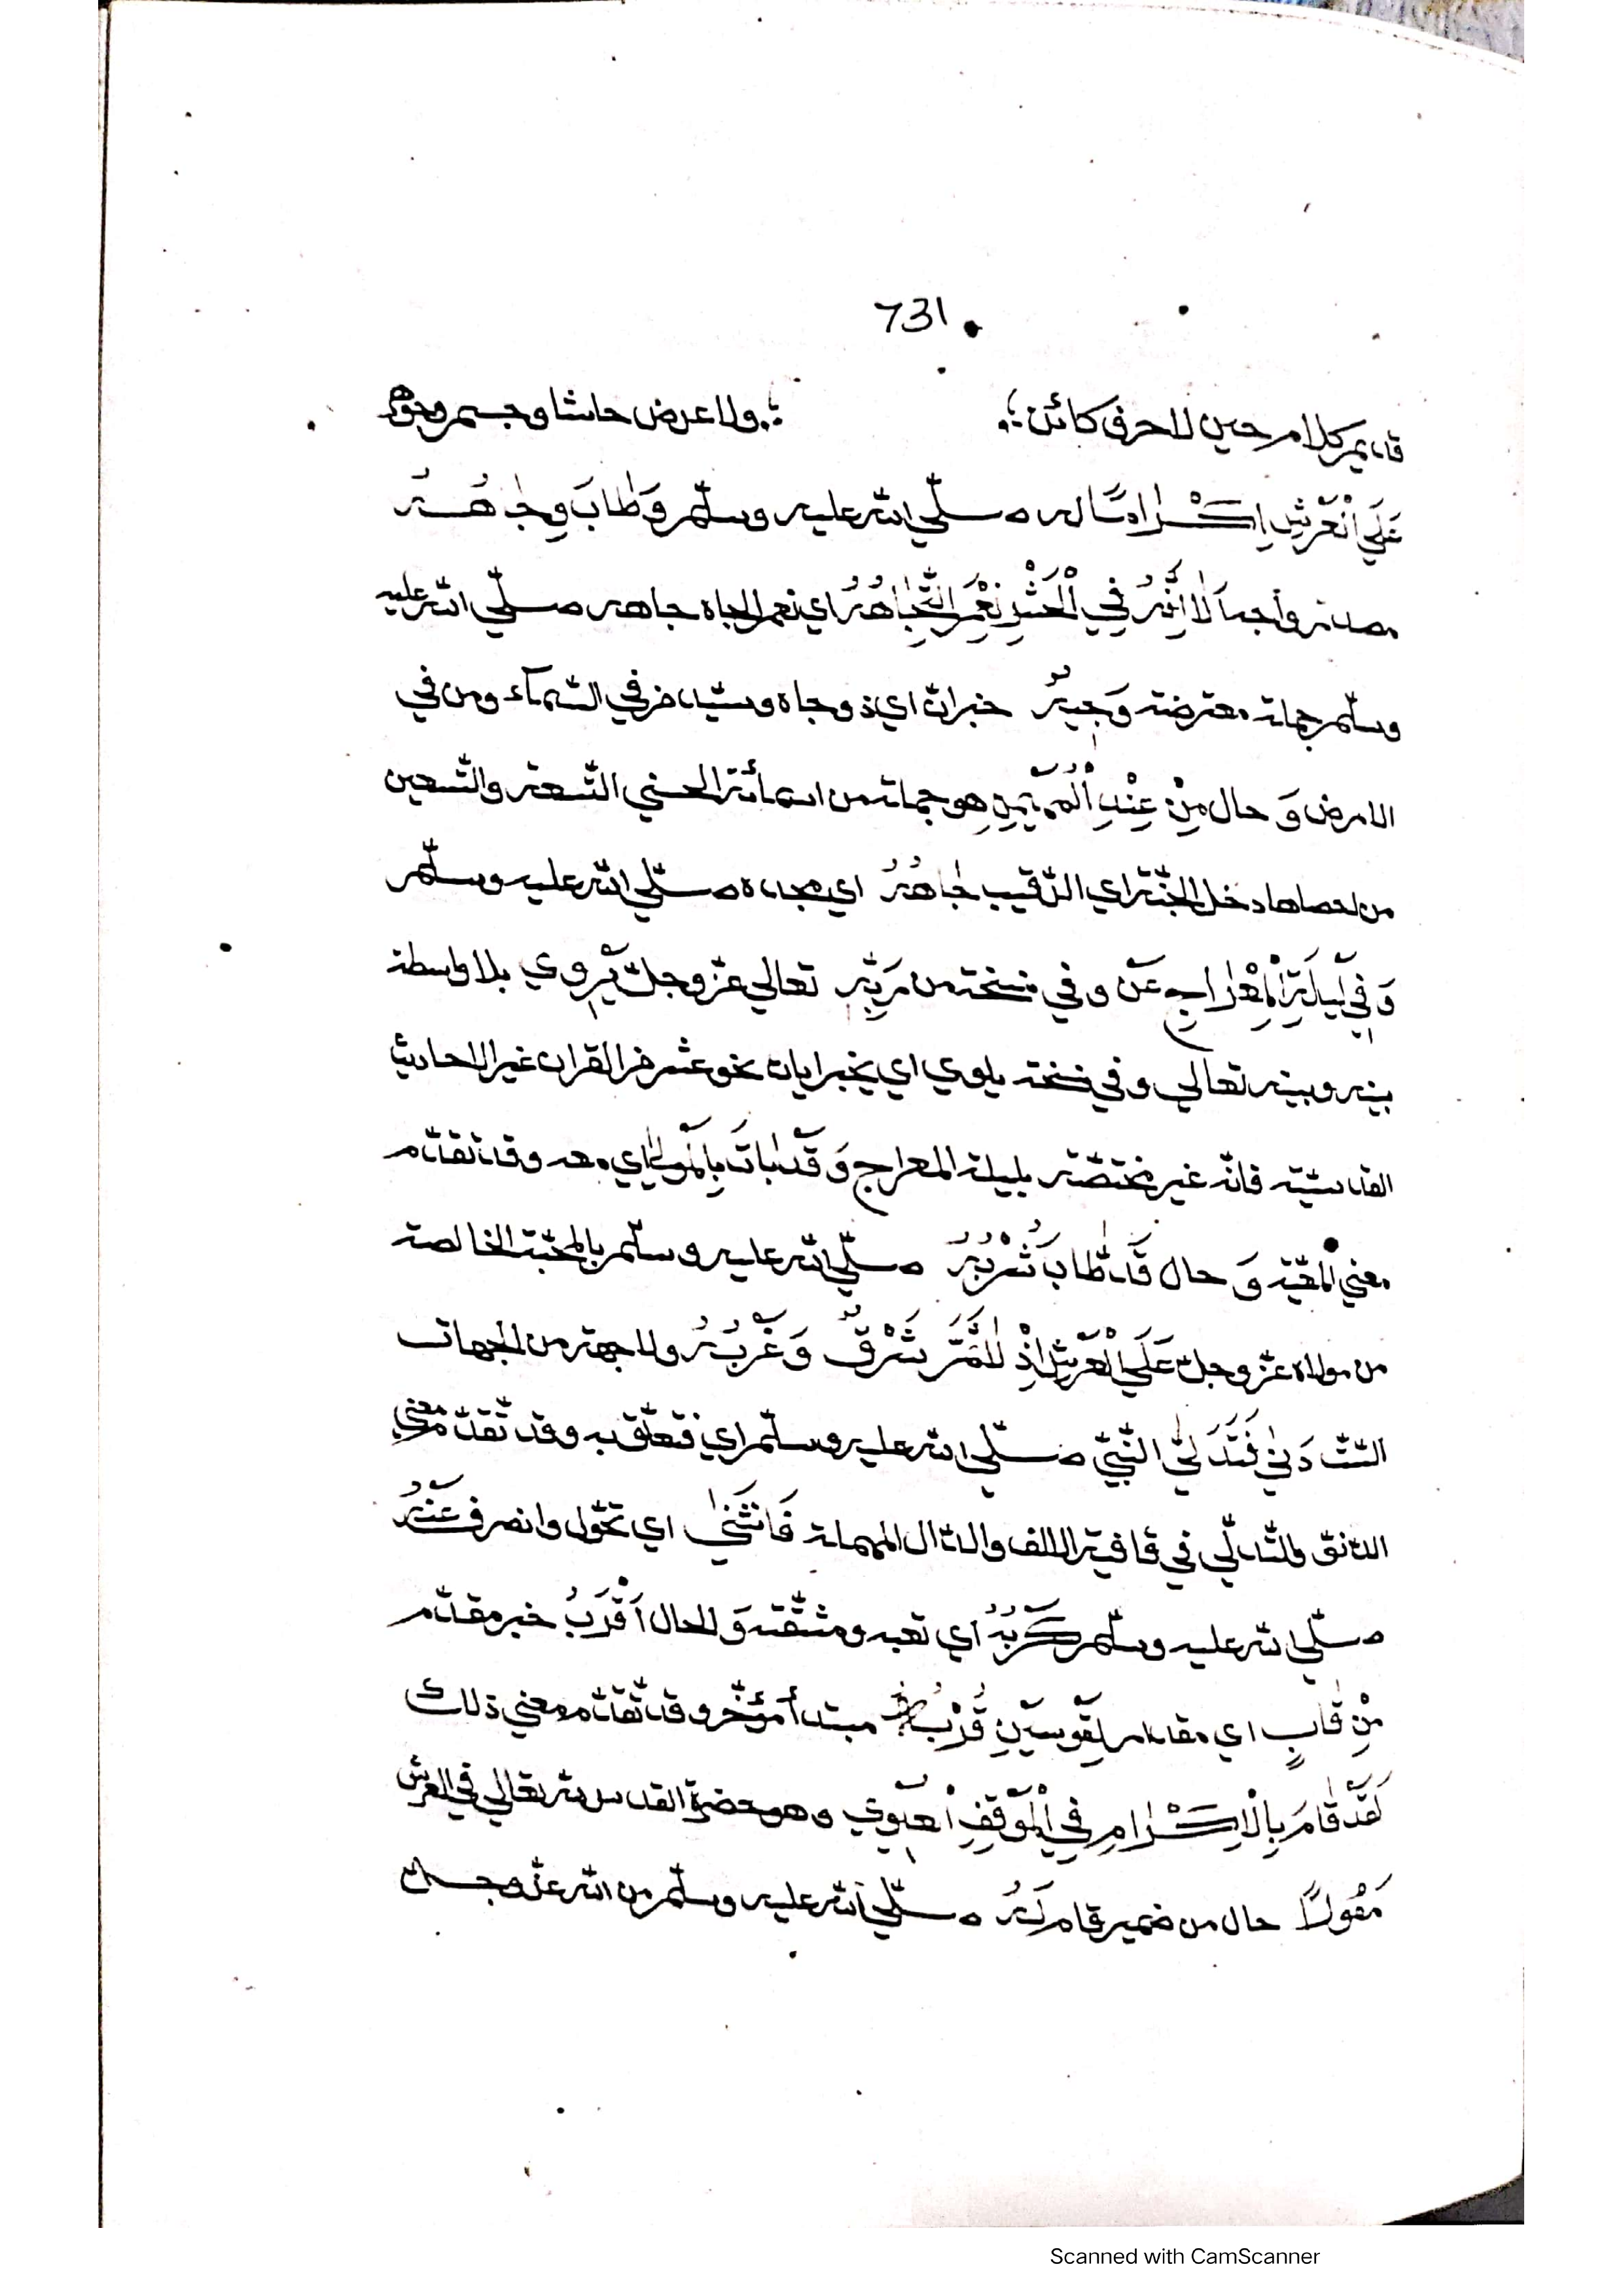 731
قديم كلام حين لا حرف كائن ؛ ؛ ولا عرض حاشا وجسم وجوهر
عَلَي الْعَرْشِ اِكْرَامًا له صلّي الله عليه وسلّم وَطَابَ وِجَاهُهُ
مصدر واجه اَلَا اِنَّهُ فِي الْحَشْرِ نِعْمَ التِّجَاهُهُ اي نعم الجاه جاهه صلّي الله عليه
وسلّم جملة معترضة وَجِيهٌ خبر انّ اي ذو جاه وسيّد من في السّمآء ومن في
الارض وَ حال مِنْ عِنْدِ الْمُهَيْمِنِ هو جملة من اسمائه الحسني التّسعة والتّسعين
من احصاها دخل الجنّة اي الرّقيب جَاهُهُ اي مجده صلّي الله عليه وسلّم
وَفِي لَيْلَةِ الْمِعْرَاجِ عَنْ وفي نسخة من رَبِّهِ تعالي عزّ وجلّ يَرْوِي بلا واسطة
بينه وبينه تعالي وفي نسخة يلوي اي يخبر ايات نحو عشر من القران غير الاحاديث
القدسيّة فانّه غير مختصّة بليلة المعراج وَقَدْ بَاتَ بِالْمَوْلَي اي معه وقد تقدّم
معني المعيّة وَ حال قَدْ طَابَ شُرْبُهُ صلّي الله عليه وسلّم بالمحبّة الخالصة
من مولاه عزّ وجلّ عَلَي الْعَرْشِ اِذْ لَا ثَمَّ شَرْقٌ وَغَرْبُهُ ولا جهة من الجهات
السّتّ دَنَي فَتَدَلَّي النّبيّ صلّي الله عليه وسلّم اي فتعلّق به وقد تقدّم معني
الدّنوّ والتّدلّي في قافية الالف والدّال المهملة فَانْثَنَي اي تحوّل وانصرف عَنْهُ
صلّي الله عليه وسلّم كَرْبُهُ اي تعبه ومشقّته وَ الحال اَقْرَبُ خبر مقدّم
مِنْ قَابٍ اي مقدار لِقَوْسَيْنِ قُرْبُهُ مبتدأ مؤخّر وقد تقدّم معني ذلك
لَقَدْ قَامَ بِالْاِكْرَامِ فِي الْمَوْقِفِ الْعلْوِي وهو حضرة القدس لله تعالي في العرش
مَقُولًا حال من ضمير قام لَهُ صلّي الله عليه وسلّم من الله عزّ وجلّ
Scanned with CamScanner